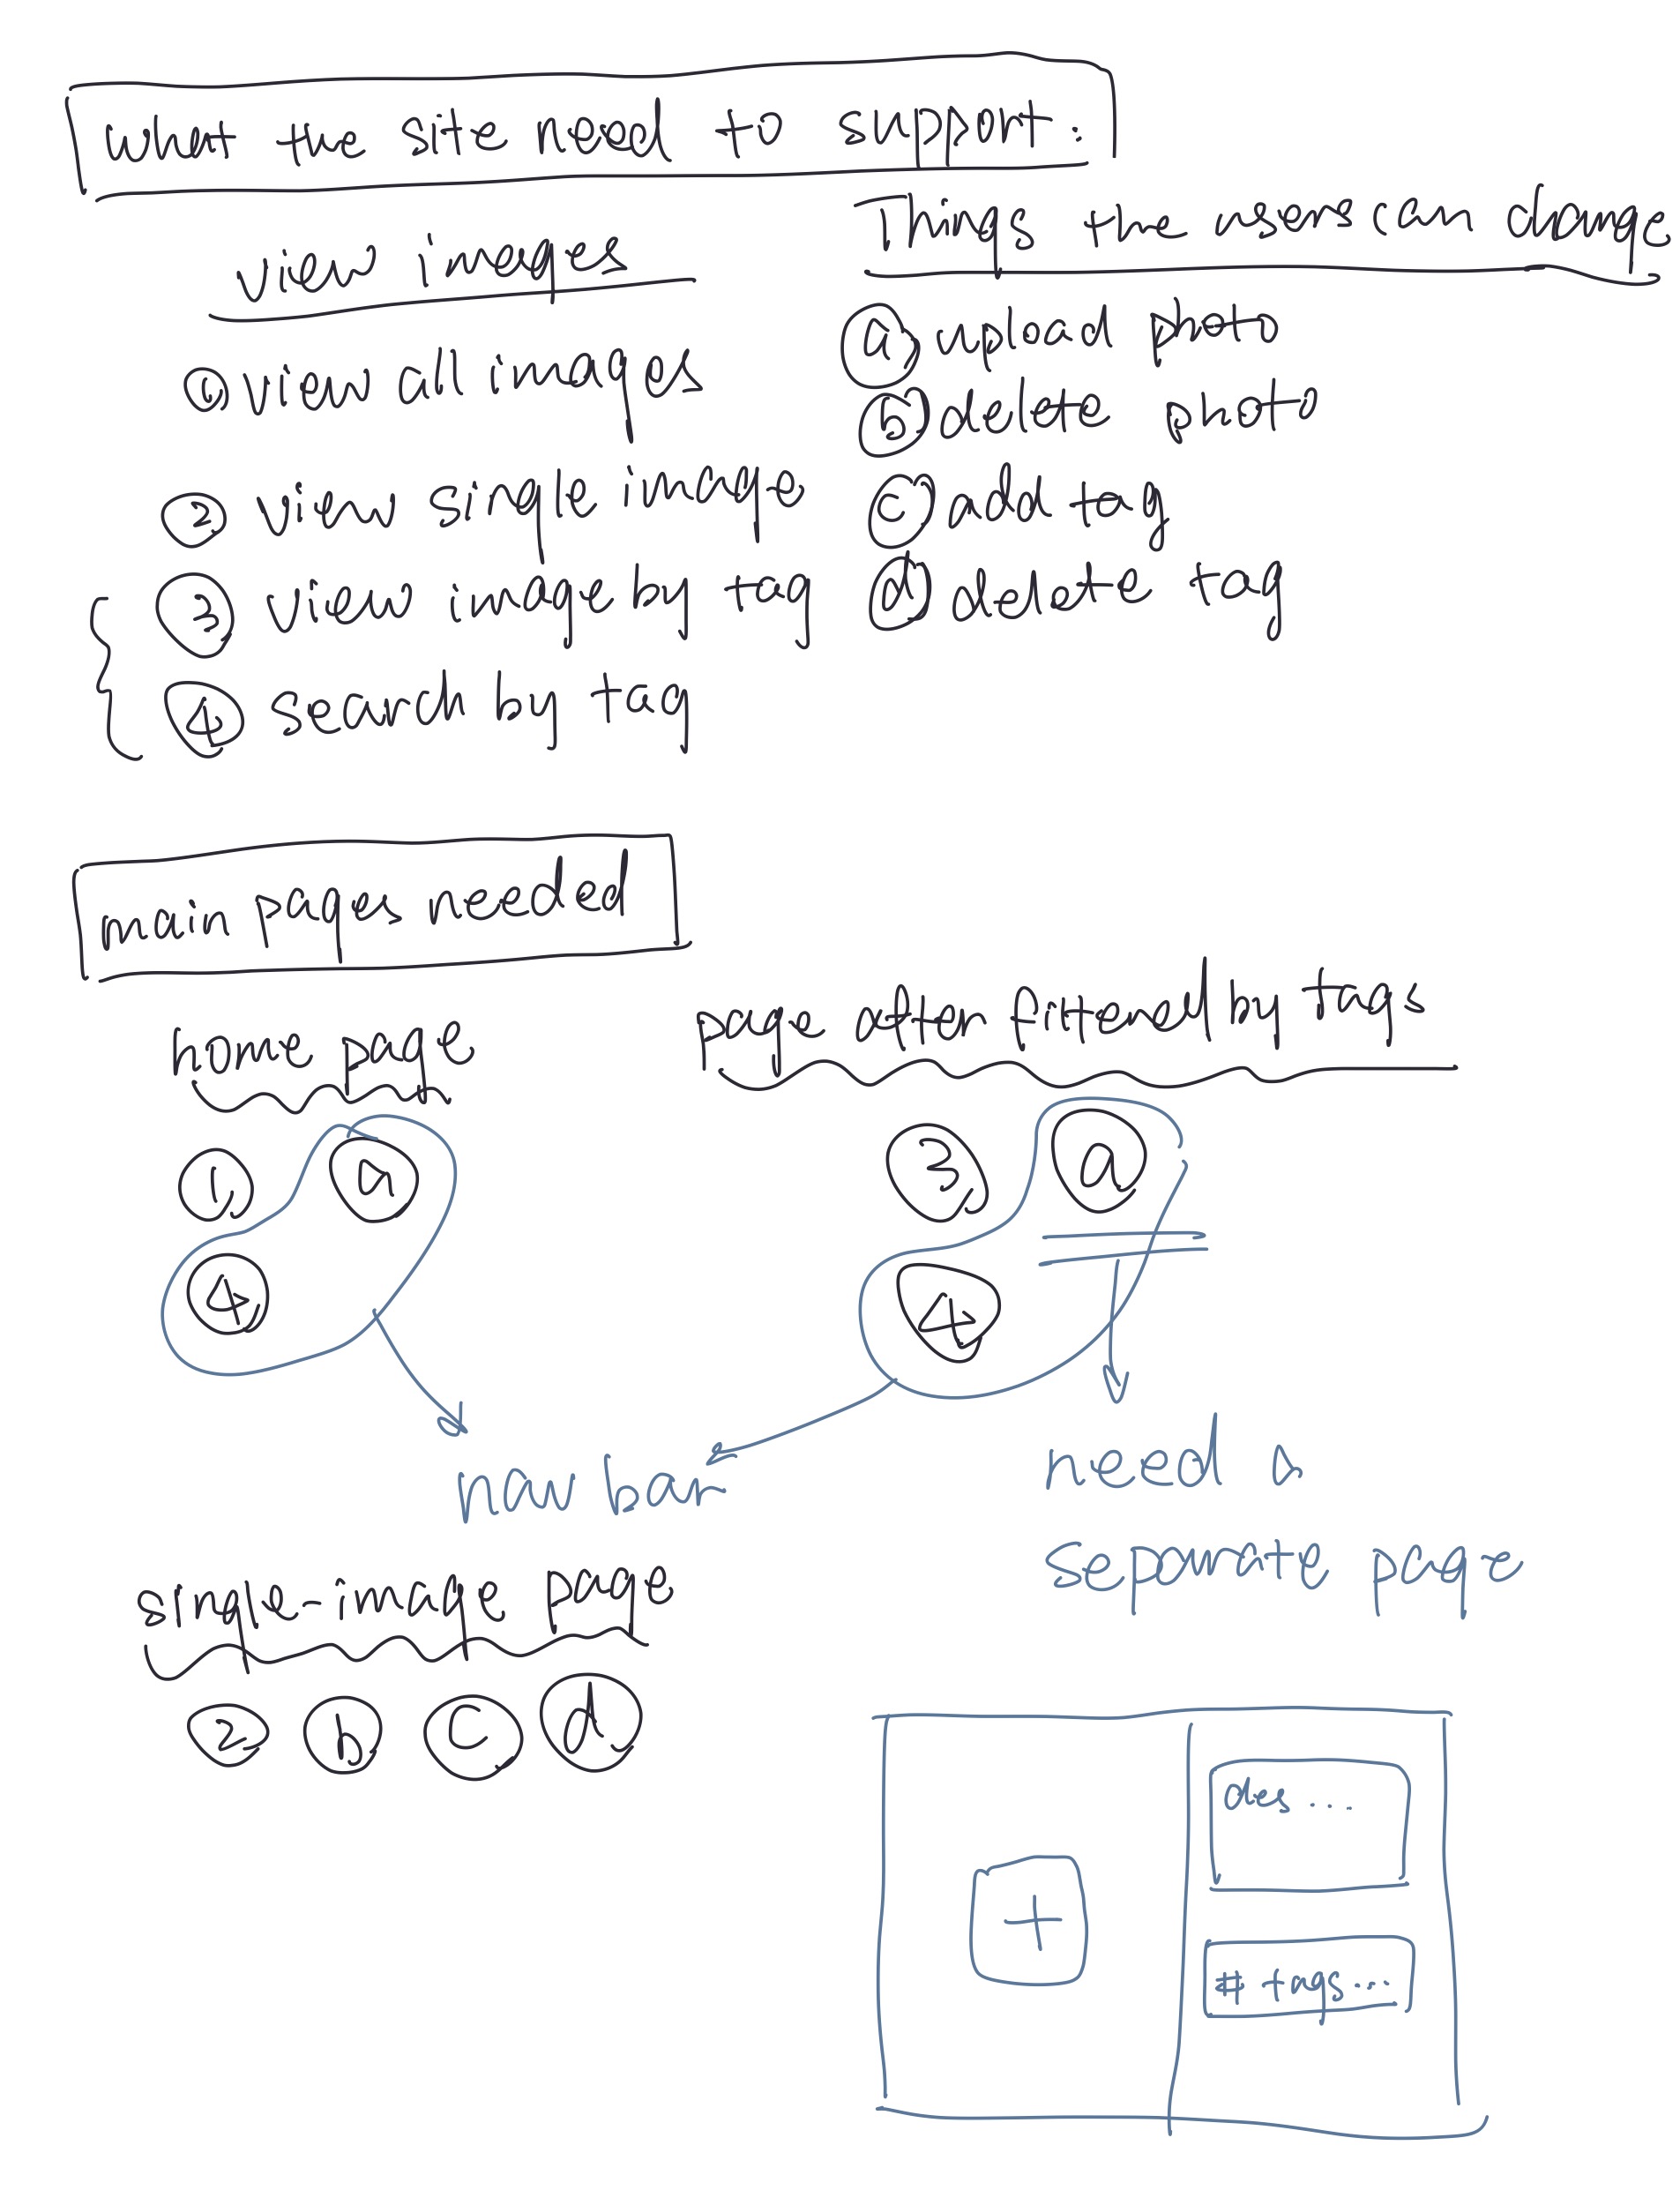 what the site need to support:
view images
① view all images
② view single image
③ view image by tag
④ search by tag
Things the users can change
ⓐ upload photo
ⓑ delete photo
ⓒ add tag
ⓓ delete tag
main pages needed
home page
①, ⓐ
④
page after filtered by tags
③, ⓐ
④
nav bar
need a
separate page
single-image page
② ⓑ ⓒ ⓓ
+
des ...
# tags ...